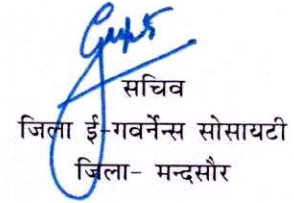 सचिव
जिला ई-गवर्नेन्स सोसायटी
जिला- मन्दसौर